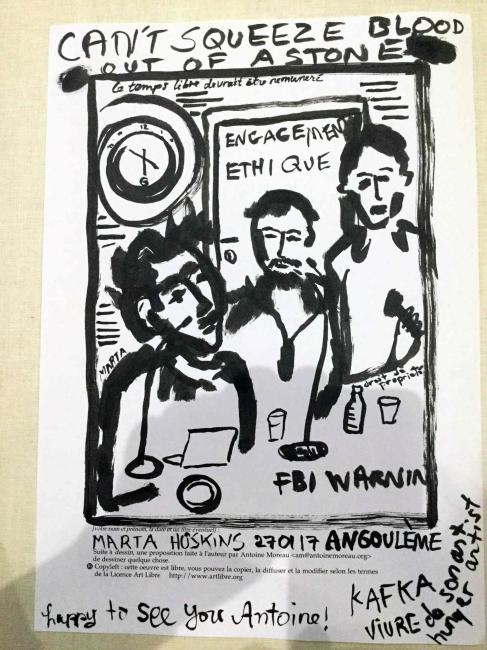 CAN'T SQUEEZE BLOOD
OUT OF A STONE
le temps libre devrait être remuneré
12
6
ENGAGEMENT
ETHIQUE
MARTA
droit de
propriete
FBI WARNIN
[votre nom et prénom, la date et un titre éventuel] :
MARTA HOSKINS 270117 ANGOULÈME
Suite à dessin, une proposition faite à l'auteur par Antoine Moreau <am@antoinemoreau.org>
de dessiner quelque chose.
Copyleft : cette oeuvre est libre, vous pouvez la copier, la diffuser et la modifier selon les termes
de la Licence Art Libre http://www.artlibre.org
happy to see you Antoine!
KAFKA
VIVRE de son art
hunger artist